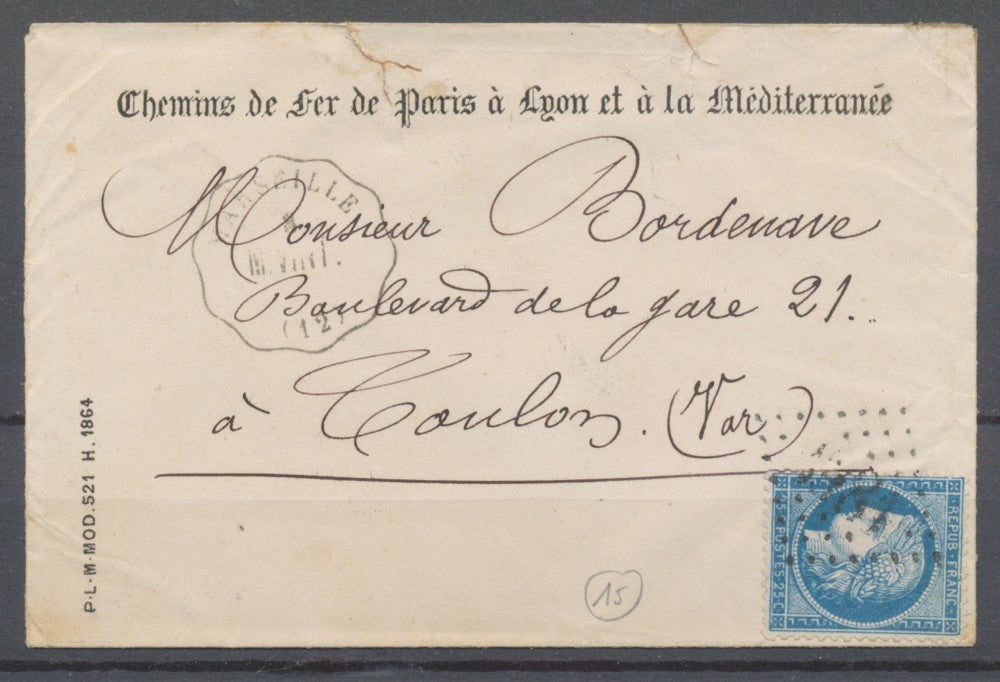 Chemins de Fer de Paris à Lyon et à la Méditerranée
MARSEILLE
(12)
Monsieur Bordenave
Boulevard de la gare 21.
à Toulon. (Var)
P-L-M-MOD.521 H.1864
15
REPUB. FRANC.
25 POSTES 25 C